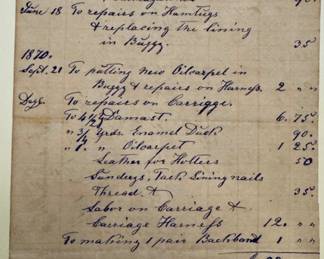 June 18 To repaires on Hamtugs
& replacing the lining
in Buggy. 35
1870.
Sept. 21 To putting New Oilcarpet in
Buggy & repaires on Harness. 2 " "
To repaires on Carrigge.
To 4 1/2 Damast. 6. 75.
" 3/4 Yrds. Enamel Duck 90.
" 1. " Oilcarpet 1 25.
Leather for Holters 50
Sunderys, Tuck, Lining nails
Thread, & 35.
Labor on Carriage &
Carriage Harness 12. " "
To making 1 pair Backband 1 " "